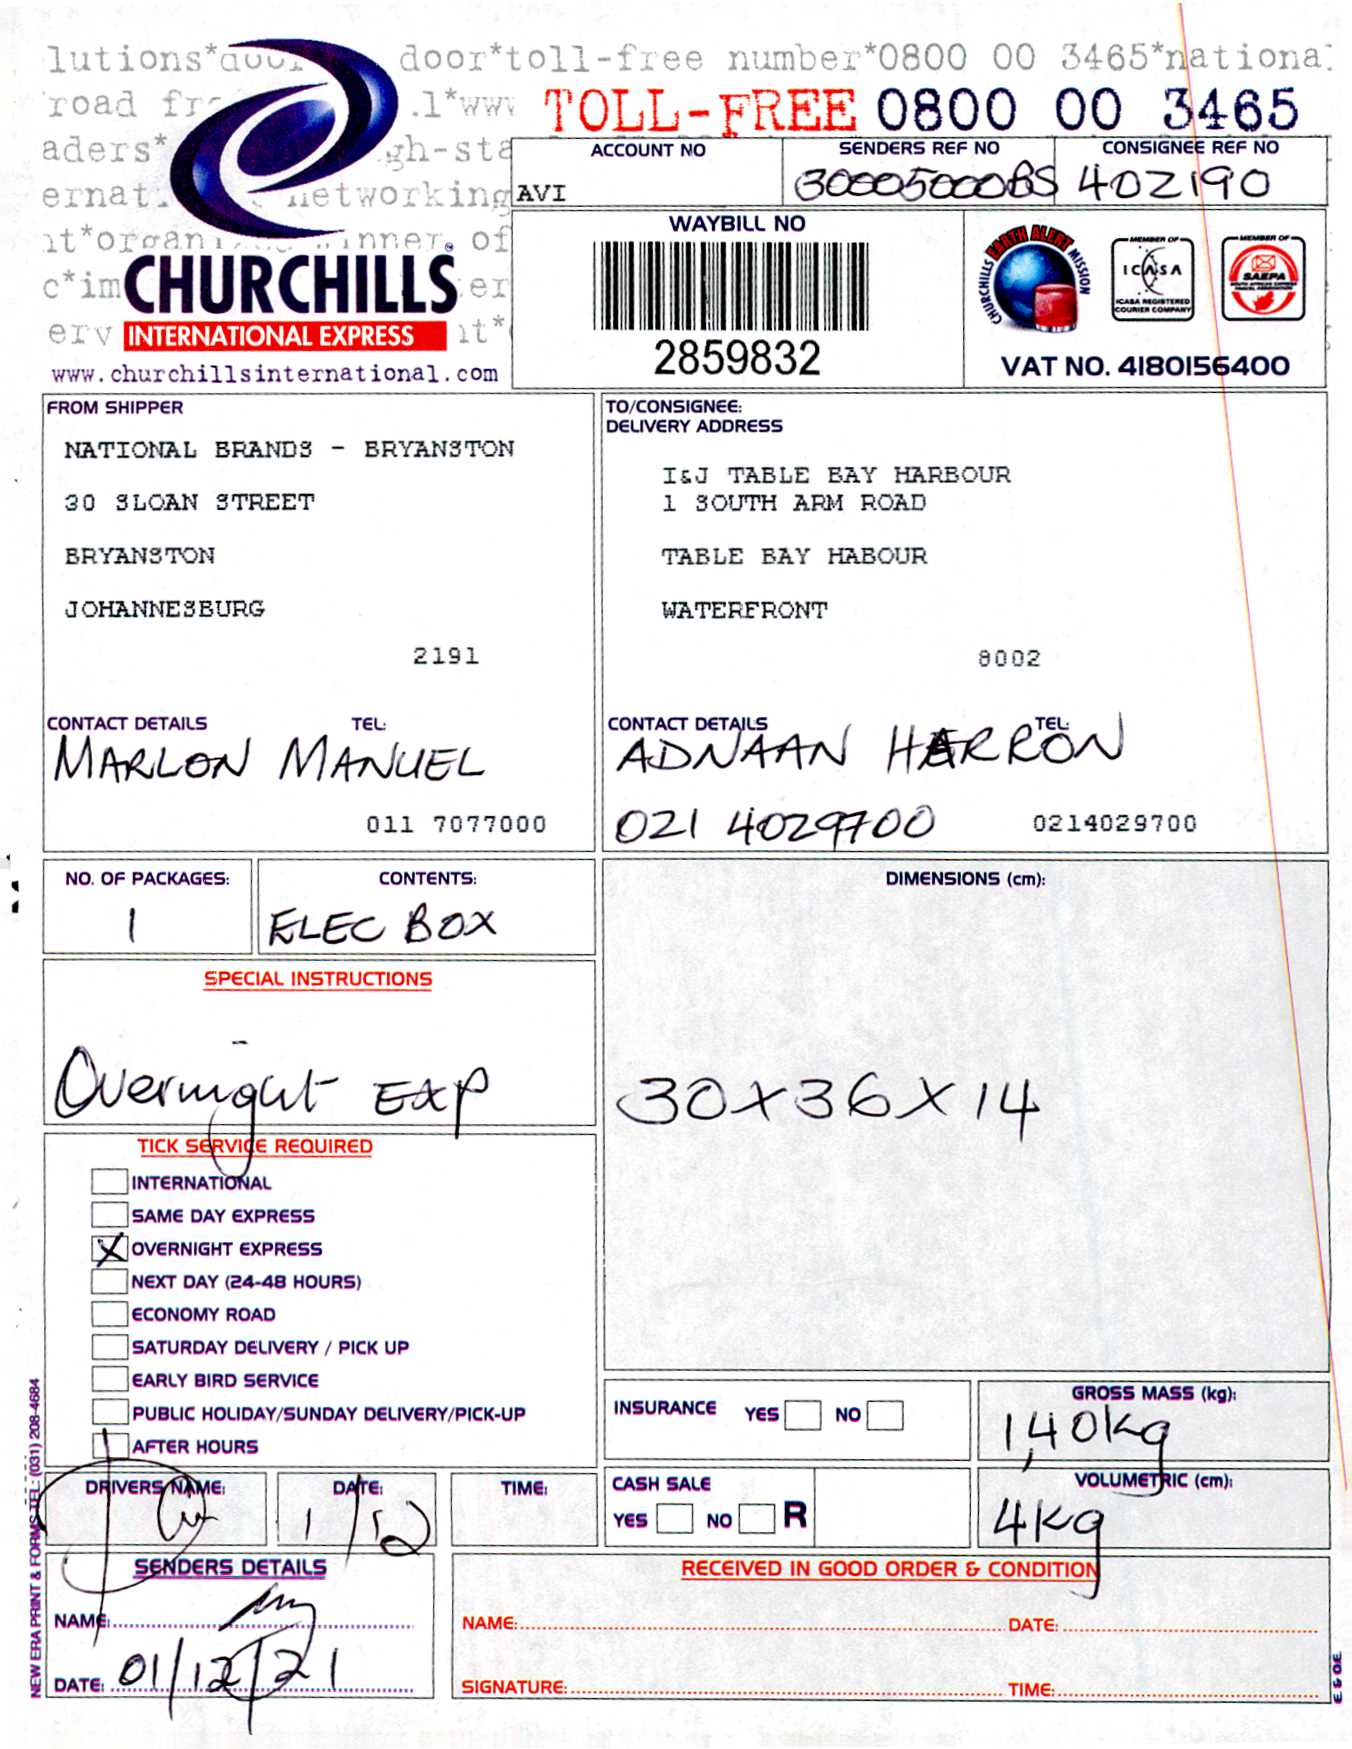 lutions*door door*toll-free number*0800 00 3465*national
road .l*www TOLL-FREE 0800 00 3465
aders* gh-sta
ACCOUNT NO SENDERS REF NO CONSIGNEE REF NO
AVI 30005000BS 402190
etworking
WAYBILL NO
2859832
CHURCHILLS EARTH ALERT MISSION
MEMBER OF
ICASA
ICASA REGISTERED
COURIER COMPANY
MEMBER OF
SAEPA
VAT NO. 4180156400
CHURCHILLS
INTERNATIONAL EXPRESS
www.churchillsinternational.com
FROM SHIPPER
NATIONAL BRANDS - BRYANSTON
30 SLOAN STREET
BRYANSTON
JOHANNESBURG
2191
CONTACT DETAILS TEL:
MARLON MANUEL
011 7077000
TO/CONSIGNEE:
DELIVERY ADDRESS
I&J TABLE BAY HARBOUR
1 SOUTH ARM ROAD
TABLE BAY HABOUR
WATERFRONT
8002
CONTACT DETAILS TEL:
ADNAAN HARRON
021 4029700 0214029700
NO. OF PACKAGES:
1
CONTENTS:
ELEC BOX
DIMENSIONS (cm):
30x36x14
SPECIAL INSTRUCTIONS
Overnight EXP
TICK SERVICE REQUIRED
INTERNATIONAL
SAME DAY EXPRESS
X OVERNIGHT EXPRESS
NEXT DAY (24-48 HOURS)
ECONOMY ROAD
SATURDAY DELIVERY / PICK UP
EARLY BIRD SERVICE
PUBLIC HOLIDAY/SUNDAY DELIVERY/PICK-UP
AFTER HOURS
INSURANCE YES NO
GROSS MASS (kg):
1,40kg
DRIVERS NAME: DATE: TIME:
1/12
CASH SALE
YES NO R
VOLUMETRIC (cm):
4kg
SENDERS DETAILS
NAME:
DATE: 01/12/21
RECEIVED IN GOOD ORDER & CONDITION
NAME: DATE:
SIGNATURE: TIME:
NEW ERA PRINT & FORMS TEL: (031) 208-4684
E & OE